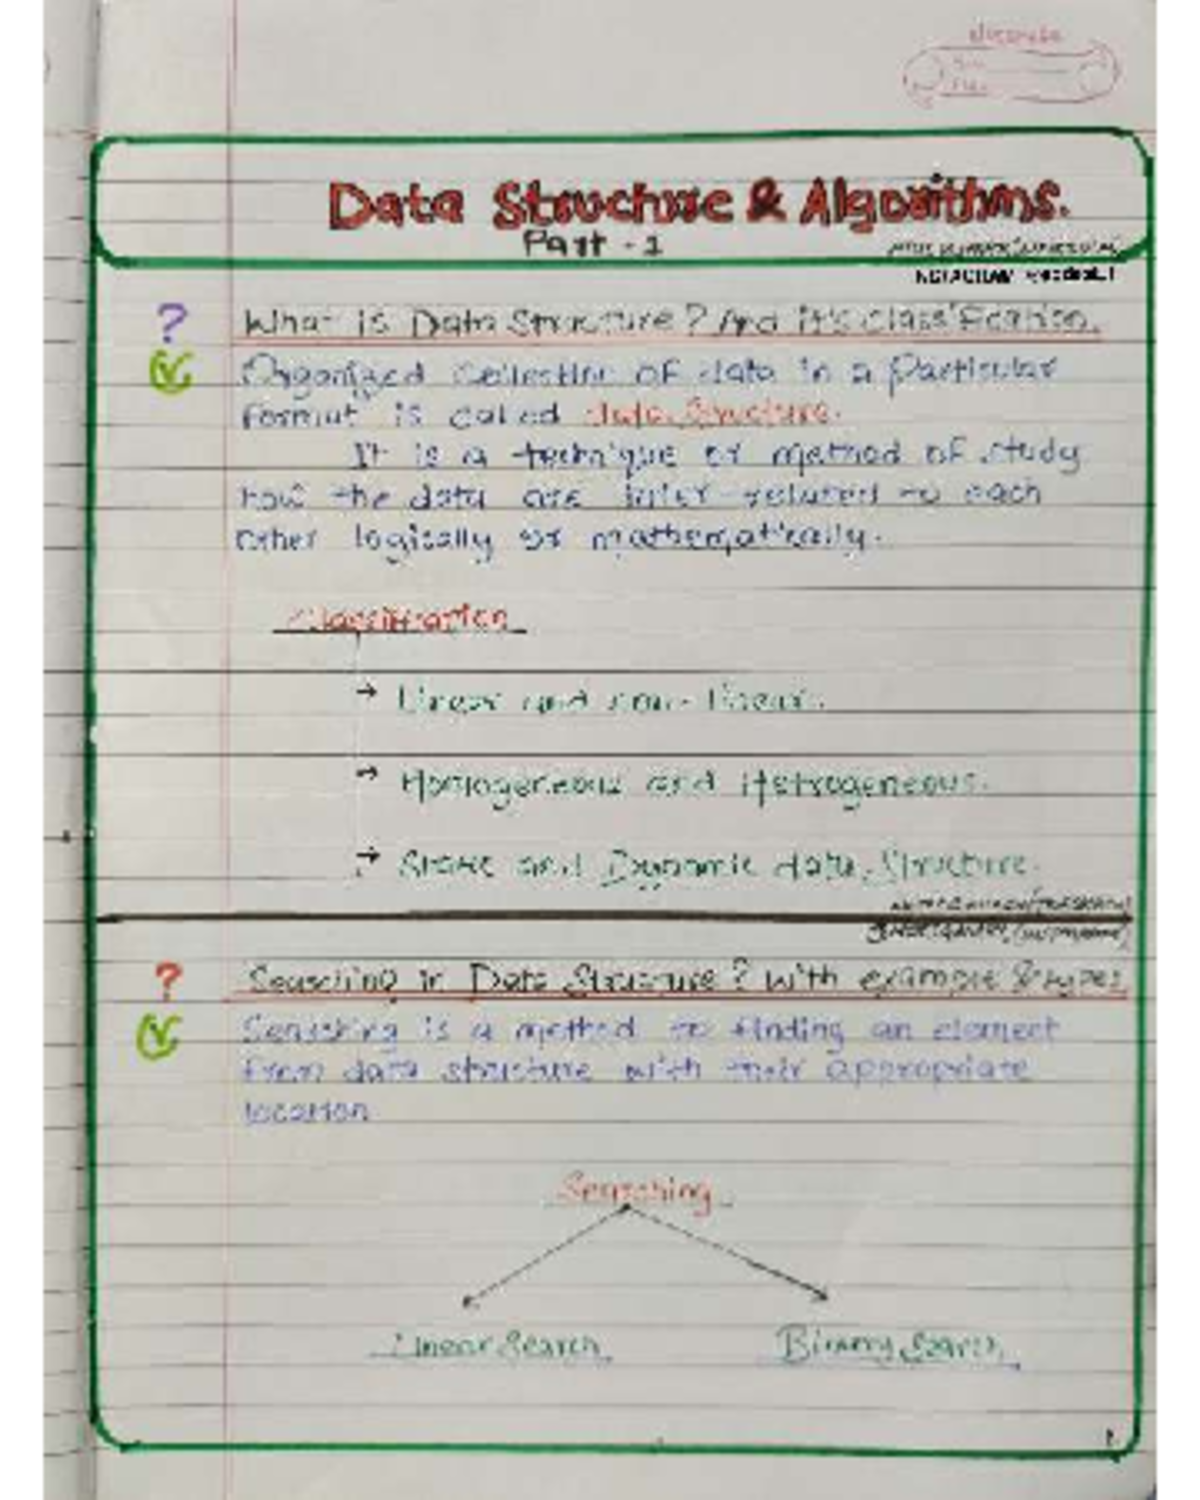 Data Structure & Algorithms.
Part - 1
? What is Data Structure? And it's classification.
Organized collection of data in a Particular
format is called data structure.
It is a technique or method of study
how the data are inter-related to each
other logically or mathematically.
Classification
→ Linear and non-linear.
→ Homogeneous and Hetrogeneous.
→ Static and Dynamic data Structure.
? Searching in Data Structure? with example & types
Searching is a method to finding an element
from data structure with their appropriate
location
Searching
Linear Search
Binary Search